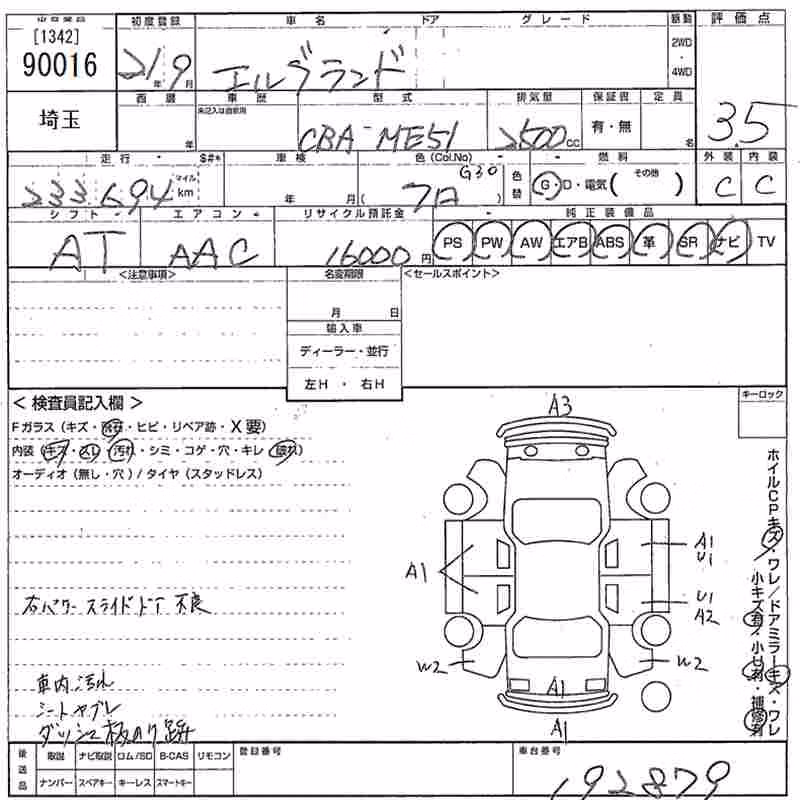 出品票品 初度登録 車名 ドア グレード 駆動 評価点
[1342]
90016 21年 9月 エルグランド 2WD・4WD 3.5
埼玉 西暦 年 車歴 未記入は自家用 型式 CBA-ME51 排気量 2500cc 保証書 有・無 定員 名
走行 $#* 車検 色(Col.No) 燃料 外装 内装
233,694 マイル km 年 月( 7A G30 ) 色替 G・D・電気( その他 ) C C
シフト エアコン リサイクル預託金 純正装備品
AT AAC 16000円 PS PW AW エアB ABS 革 SR ナビ TV
<注意事項> 名変期限 <セールスポイント>
月 日
輸入車
ディーラー・並行
左H ・ 右H
< 検査員記入欄 > キーロック
Fガラス (キズ・飛石・ヒビ・リペア跡・X要)
内装 (キズ・スレ・汚れ・シミ・コゲ・穴・キレ・破れ)
オーディオ (無し・穴) / タイヤ (スタッドレス)
右パワースライドドア 不良
車内汚れ
シートヤブレ
ダッシュ板のり跡
A3
A1
A1
U1
U1
A2
W2
W2
A1
A1
ホイルCPキズ・ワレ/ドアミラーキズ・ワレ
小キズ有・小U有・補修有
後送品 取説 ナビ取説 ロム/SD B-CAS リモコン 登録番号 車台番号
ナンバー スペアキー キーレス スマートキー 192879